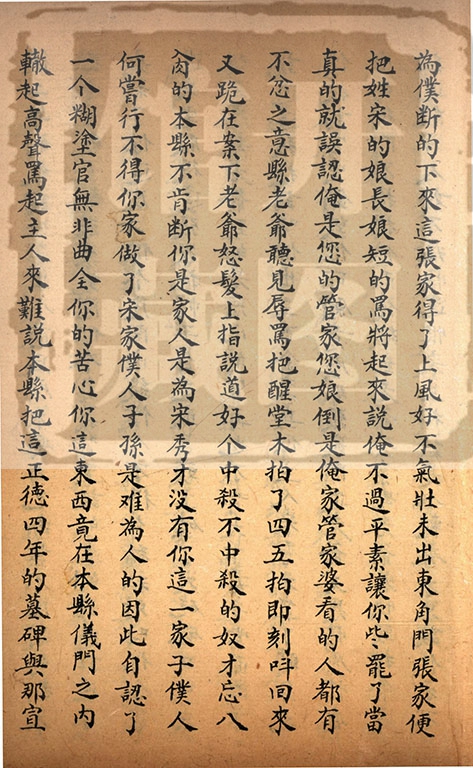 為僕斷的下來這張家得了上風好不氣壯未出東角門張家便
把姓宋的娘長娘短的罵將起來說俺不過平素讓你些罷了當
真的就誤認俺是您的管家您娘倒是俺家管家婆看的人都有
不忿之意縣老爺聽見辱罵把醒堂木拍了四五拍即刻呌回來
又跪在案下老爺怒髮上指說道好个中殺不中殺的奴才忘八
肏的本縣不肯斷你是家人是為宋秀才没有你這一家子僕人
何嘗行不得你家做了宋家僕人子孫是难為人的因此自認了
一个糊塗官無非曲全你的苦心你這東西竟在本縣儀門之内
轍起高聲罵起主人來難說本縣把這正德四年的墓碑與那宣